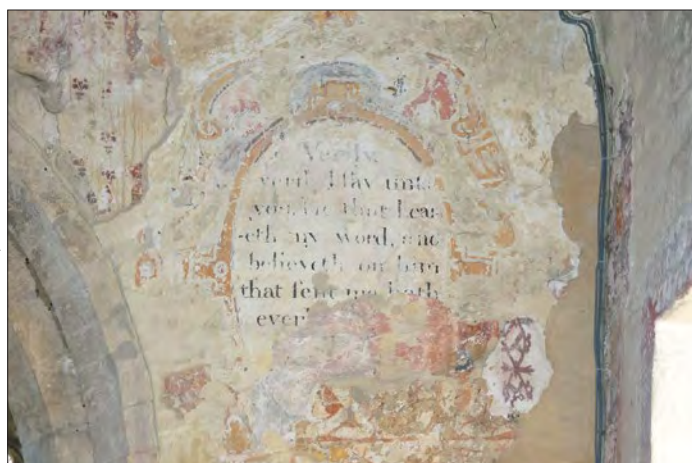 Verily,
verily I ſay unto
you, he that hear
-eth my word, and
believeth on him
that ſent me hath